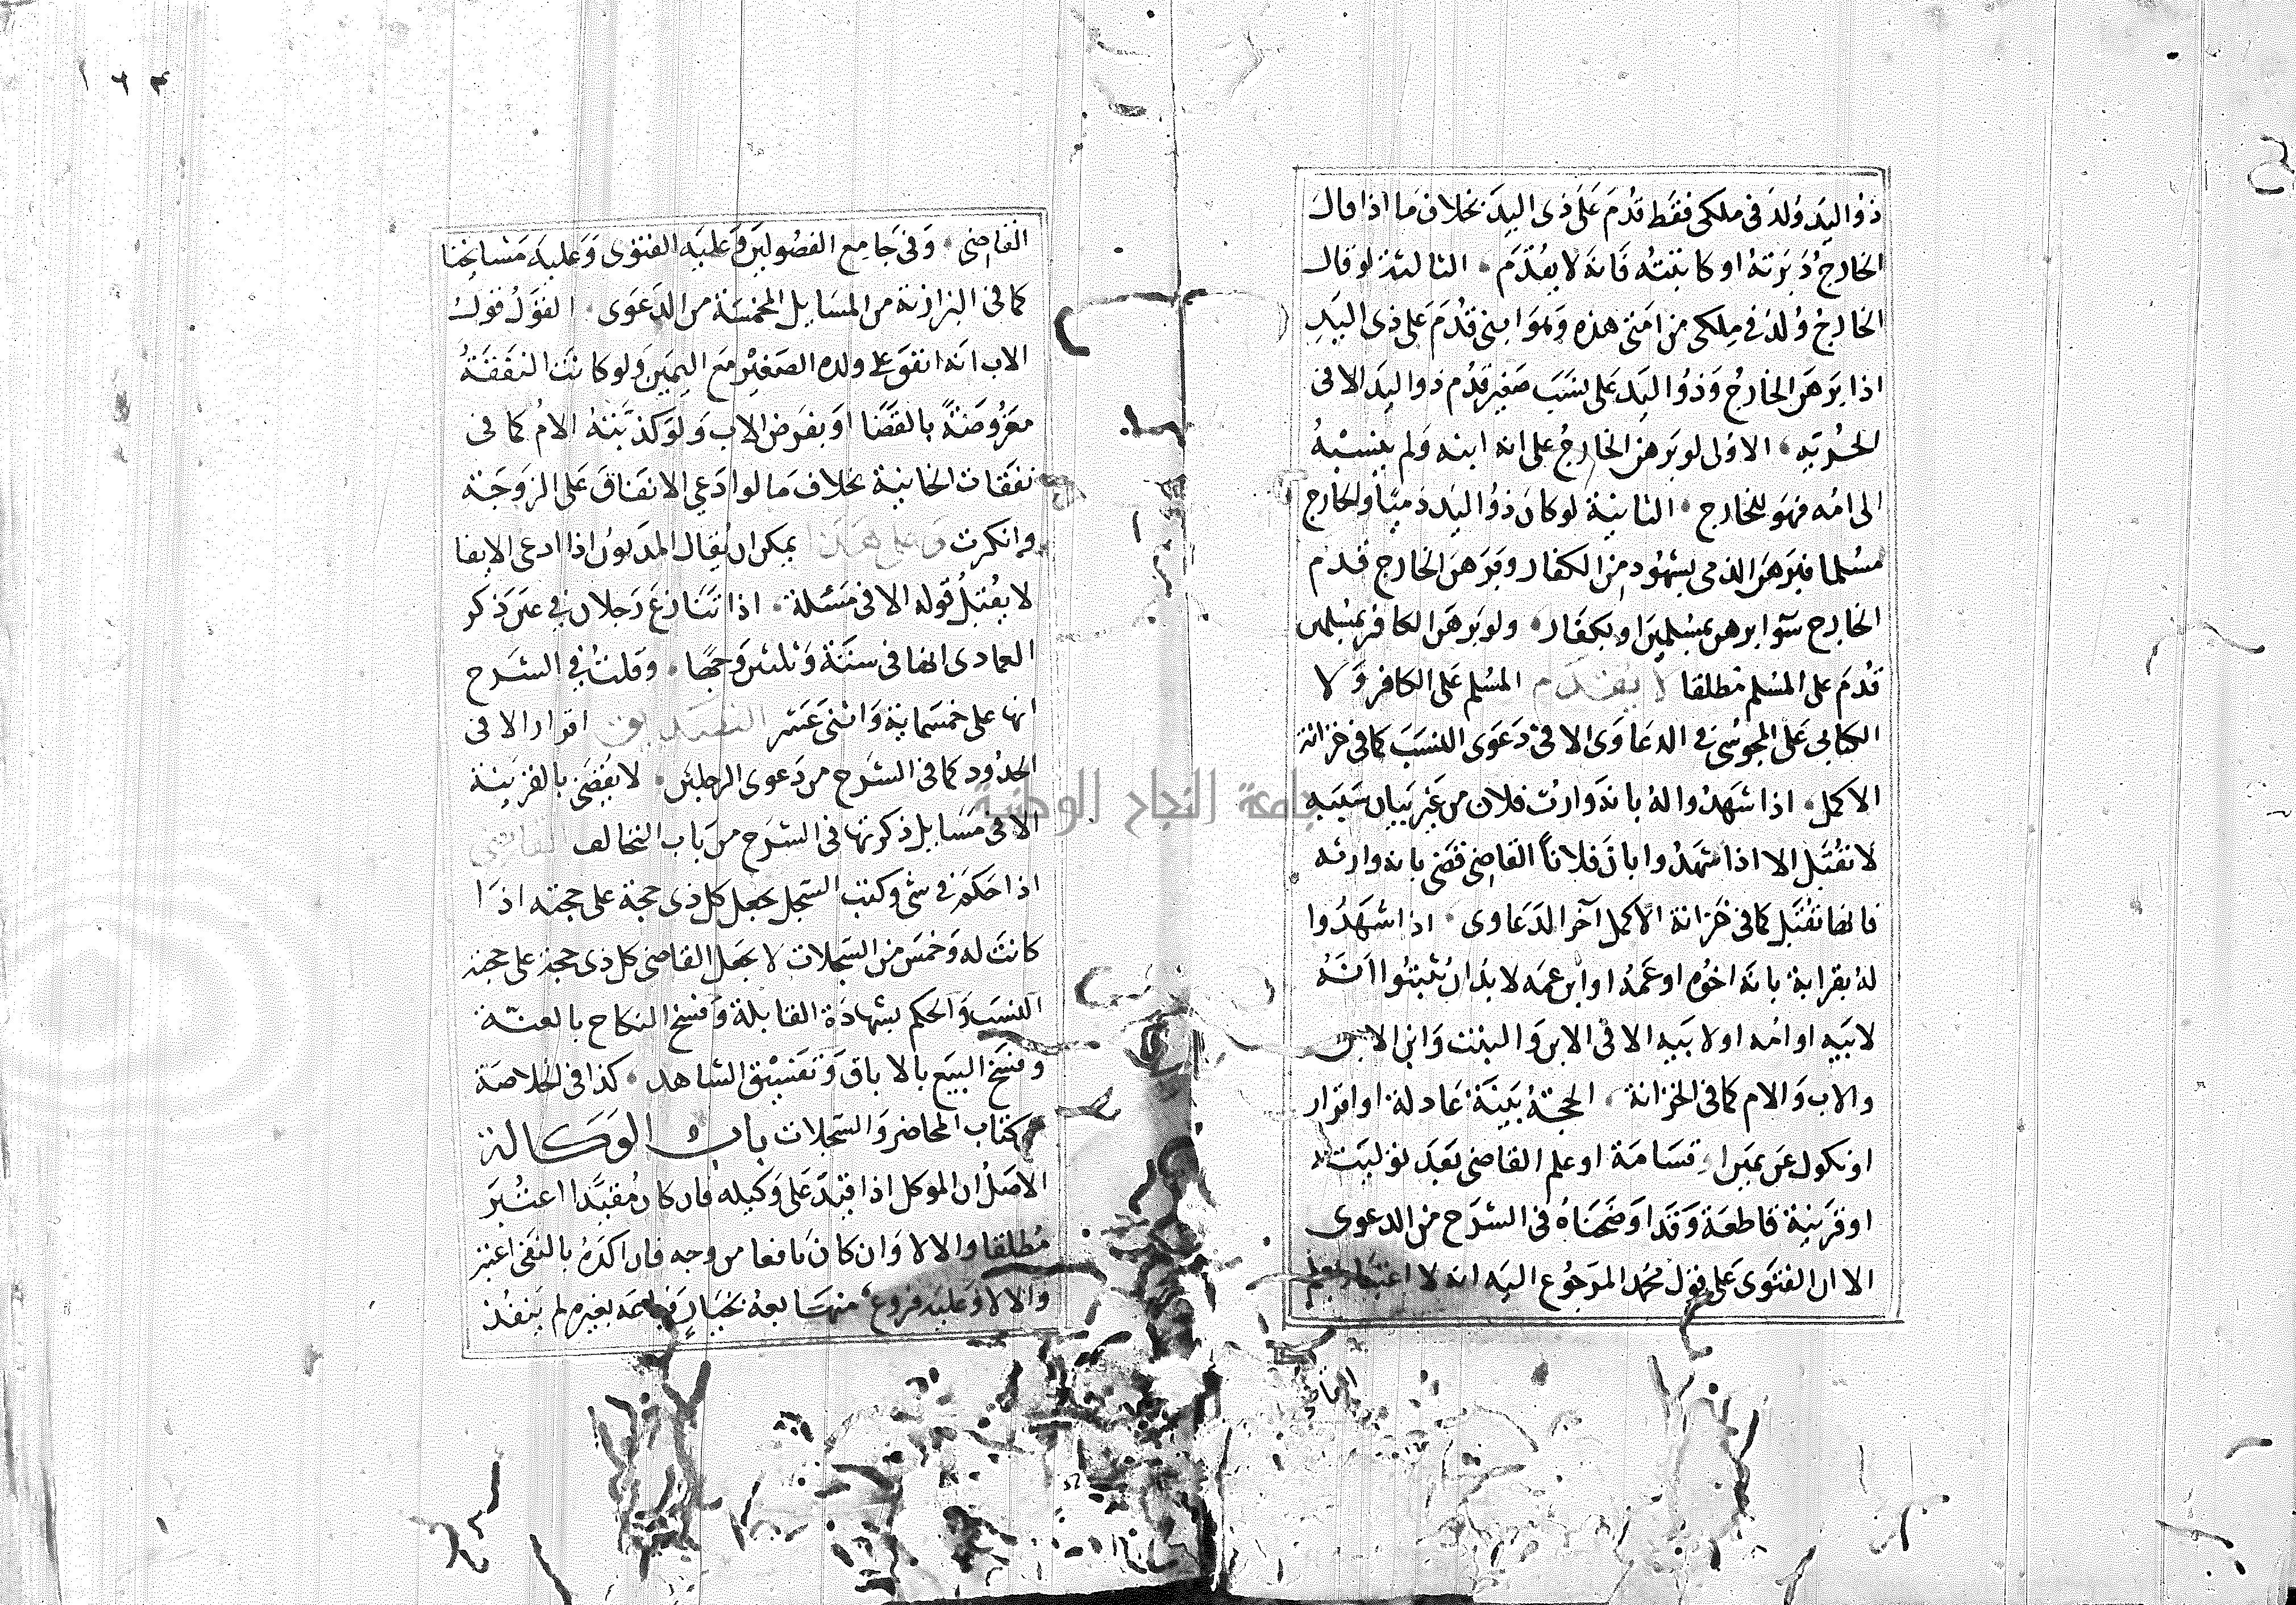 ذو اليد ولد في ملكى فقط قدم على ذى اليد بخلاف ما اذا قال
الخارج دبرته او كاتبته فانه لا يقدم • الثالثة لو قال
الخارج ولد في ملكى من امتى هذه وهو ابنى قدم على ذى اليد
اذا برهن الخارج وذو اليد على نسب صغير قدم ذو اليد الا في
الاولى لو برهن الخارج على انه ابنه ولم ينسبه
الى امه فهو للخارج • الثانية لو كان ذو اليد ذميا والخارج
مسلما فبرهن الذمى بشهود من الكفار وبرهن الخارج قدم
الخارج سوا برهن بمسلمين او بكفار • ولو برهن الكافر بمسلمين
قدم على المسلم مطلقا لا يقدم المسلم على الكافر ولا
الكتابى على المجوسى في الدعاوى الا في دعوى النسب كما في خزانة
الاكمل • اذا شهدوا له بانه وارث فلان من غير بيان سببه
لا تقبل الا اذا شهدوا بان فلانا القاضى قضى بانه وارثه
فانها تقبل كما في خزانة الاكمل آخر الدعاوى • اذا شهدوا
له بقرابة بانه اخوه او عمه او ابن عمه لا بد ان يثبتوا انه
لابيه او امه او لابيه الا في الابن والبنت وابن الابن
والاب والام كما في الخزانة • الحجة بينة عادلة او اقرار
او نكول عن يمين او قسامة او علم القاضى بعد توليته
او قرينة قاطعة وقد اوضحناه في الشرح من الدعوى
الا ان الفتوى على قول محمد المرجوع اليه انه لا اعتبار بعلم
القاضى
١٦٣
القاضى • وفي جامع الفصولين وعليه الفتوى وعليه مشايخنا
كما في البزازية من المسايل المخمسة من الدعوى • القول قول
الاب انه انفق على ولده الصغير مع اليمين ولو كانت النفقة
مفروضة بالقضا او بفرض الاب ولو كذبته الام كما في
نفقات الخانية بخلاف ما لو ادعى الانفاق على الزوجة
وانكرت وعلى هذا يمكن ان يقال المديون اذا ادعى الايفا
لا يقبل قوله الا في مسئلة • اذا تنازع رجلان في عين ذكر
العمادى انها في ستة وثلثين وجها • وقلت في الشرح
انها على خمسماية واثنى عشر التصديق اقرار الا في
الحدود كما في الشرح من دعوى الرجلين • لا يقضى بالقرينة
الا في مسايل ذكرتها في الشرح من باب التحالف القاضى
اذا حكم في شى وكتب السجل جعل كل ذى حجة على حجته اذا
كانت له وخمس من السجلات لا يجعل القاضى كل ذى حجة على حجته
النسب والحكم بشهادة القابلة وفسخ النكاح بالعنة
وفسخ البيع بالاباق وتفسيق الشاهد • كذا في الخلاصة
كتاب المحاضر والسجلات باب الوكالة
الاصل ان الموكل اذا قيد على وكيله فان كان مفيدا اعتبر
مطلقا والا لا وان كان نافعا من وجه فان اكده بالنفى اعتبر
والا لا وعليه فروع منها بعه بخيار فباعه بغيره لم ينفذ
جامعة النجاح الوطنية